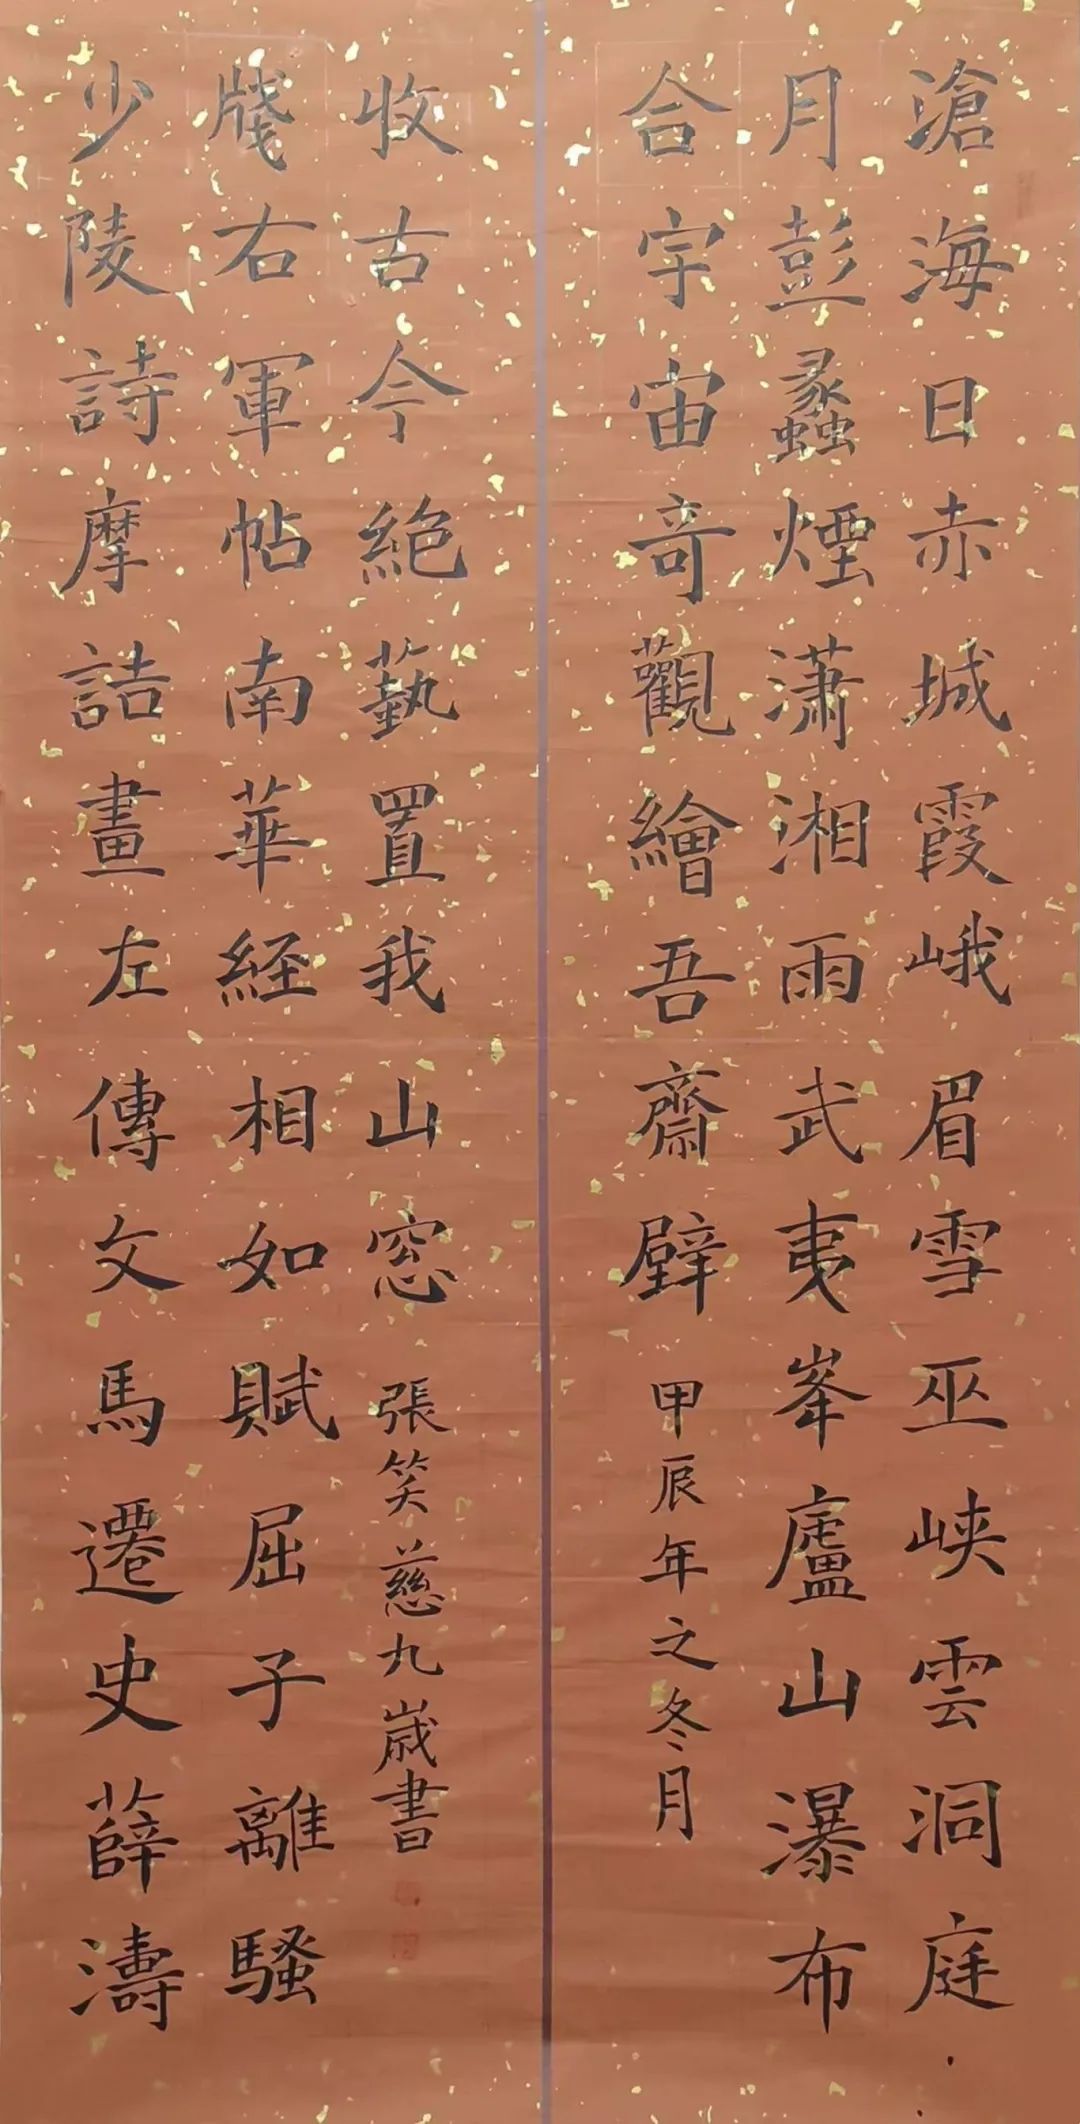 滄海日赤城霞峨眉雪巫峽雲洞庭
月彭蠡煙瀟湘雨武夷峯廬山瀑布
合宇宙奇觀繪吾齋壁
甲辰年之冬月
少陵詩摩詰畫左傳文馬遷史薛濤
牋右軍帖南華経相如賦屈子離騷
收古今絶藝置我山窓
張笑慈九歲書